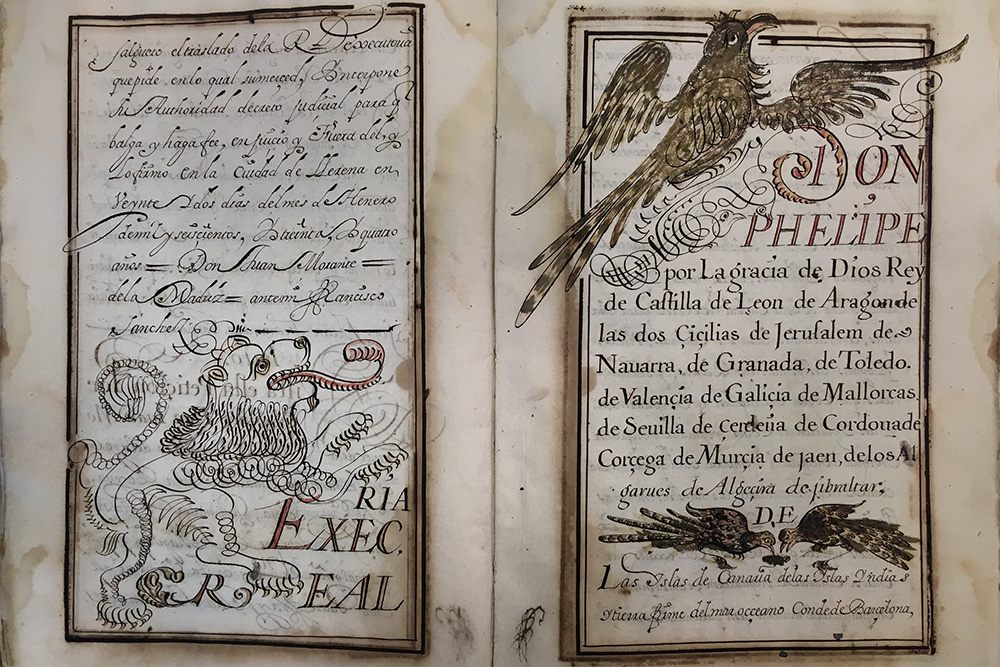 salguero el traslado dela Rl Executoria
quepide en lo qual sumerced, Ynterpone
su Authoridad decreto judicial para q̃
balga y haga fee, en juicio y fuera del, y
Lo firmo en la Ciudad de Llerena en
Veynte Y dos dias del mes de Henero
demil y seiscientos, Y treinta, Y quatro
años = Don Juan Morante =
dela Madriz = antemi Francisco
Sanchez
RIA
EXEC.
R EAL
DON
PHELIPE
por La gracia de Dios Rey
de Castilla de Leon de Aragon de
las dos Çiçilias de Jerusalem de
Nauarra, de Granada, de Toledo.
de Valençia de Galiçia de Mallorcas
de Seuilla de çerdeña de Cordoua de
Corçega de Murçia de jaen, delos Al
garues de Algeçira de jibraltar,
DE
Las Yslas de Canaria delas Yslas Yndias
Ytierra firme del mar, occeano Conde de Barcelona,